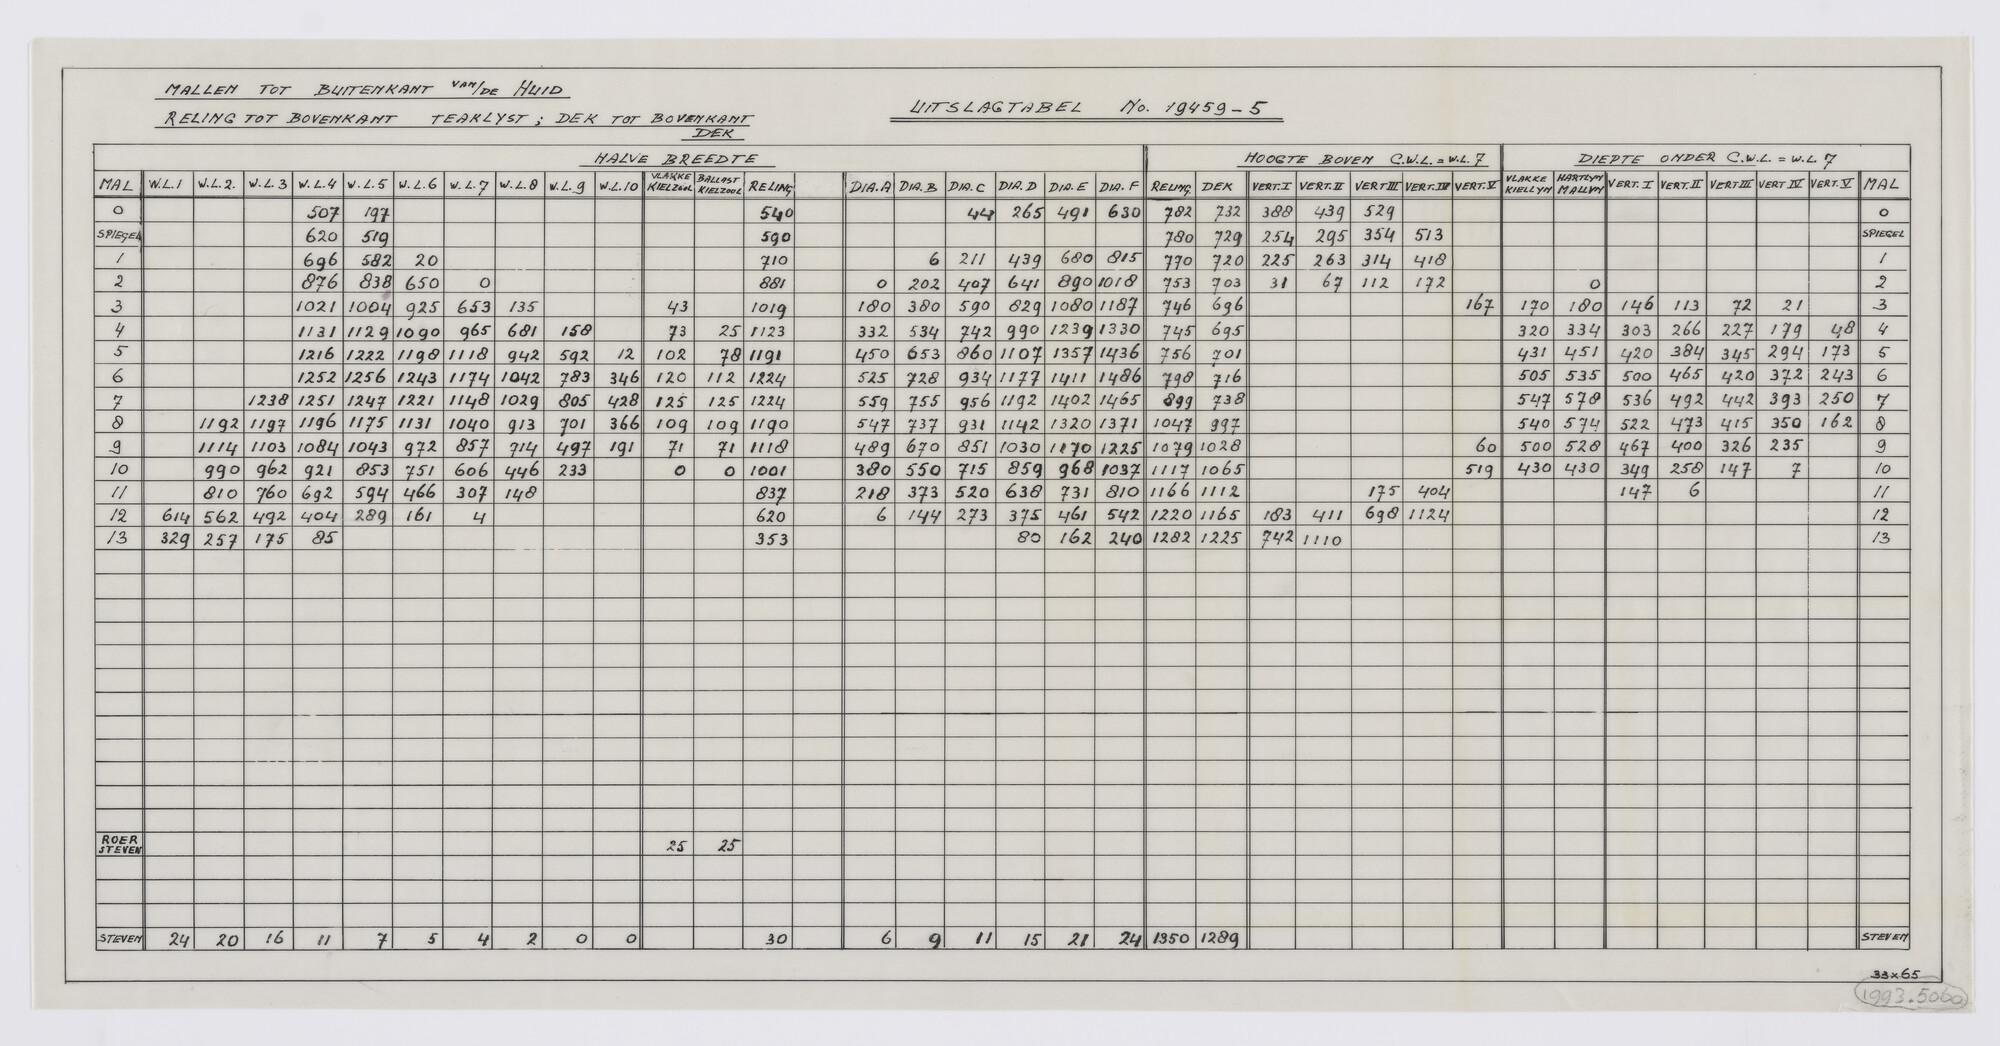 MALLEN TOT BUITENKANT VAN/DE HUID
RELING TOT BOVENKANT TEAKLYST; DEK TOT BOVENKANT
DEK
UITSLAGTABEL No. 19459-5
HALVE BREEDTE HOOGTE BOVEN C.W.L. = W.L. 7 DIEPTE ONDER C.W.L. = W.L. 7
MAL W.L.1 W.L.2. W.L.3 W.L.4 W.L.5 W.L.6 W.L.7 W.L.8 W.L.9 W.L.10 VLAKKE KIELZOOL BALLAST KIELZOOL RELING DIA.A DIA.B DIA.C DIA.D DIA.E DIA.F RELING DEK VERT.I VERT.II VERT III VERT.IV VERT.V VLAKKE KIELLYN HARTLYN MALLYN VERT.I VERT.II VERT III VERT IV VERT.V MAL
0 507 197 540 44 265 491 630 782 732 388 439 529 0
SPIEGEL 620 519 590 780 729 254 295 354 513 SPIEGEL
1 696 582 20 710 6 211 439 680 815 770 720 225 263 314 418 1
2 876 838 650 0 881 0 202 407 641 890 1018 753 703 31 67 112 172 0 2
3 1021 1004 925 653 135 43 1019 180 380 590 829 1080 1187 746 696 167 170 180 146 113 72 21 3
4 1131 1129 1090 965 681 158 73 25 1123 332 534 742 990 1239 1330 745 695 320 334 303 266 227 179 48 4
5 1216 1222 1198 1118 942 592 12 102 78 1191 450 653 860 1107 1357 1436 756 701 431 451 420 384 345 294 173 5
6 1252 1256 1243 1174 1042 783 346 120 112 1224 525 728 934 1177 1411 1486 798 716 505 535 500 465 420 372 243 6
7 1238 1251 1247 1221 1148 1029 805 428 125 125 1224 559 755 956 1192 1402 1465 899 738 547 578 536 492 442 393 250 7
8 1192 1197 1196 1175 1131 1040 913 701 366 109 109 1190 547 737 931 1142 1320 1371 1047 997 540 574 522 473 415 350 162 8
9 1114 1103 1084 1043 972 857 714 497 191 71 71 1118 489 670 851 1030 1170 1225 1079 1028 60 500 528 467 400 326 235 9
10 990 962 921 853 751 606 446 233 0 0 1001 380 550 715 859 968 1037 1117 1065 519 430 430 349 258 147 7 10
11 810 760 692 594 466 307 148 837 218 373 520 638 731 810 1166 1112 175 404 147 6 11
12 614 562 492 404 289 161 4 620 6 144 273 375 461 542 1220 1165 183 411 698 1124 12
13 329 257 175 85 353 80 162 240 1282 1225 742 1110 13
ROER STEVEN 25 25
STEVEN 24 20 16 11 7 5 4 2 0 0 30 6 9 11 15 21 24 1350 1289 STEVEN
33x65
1993.5060